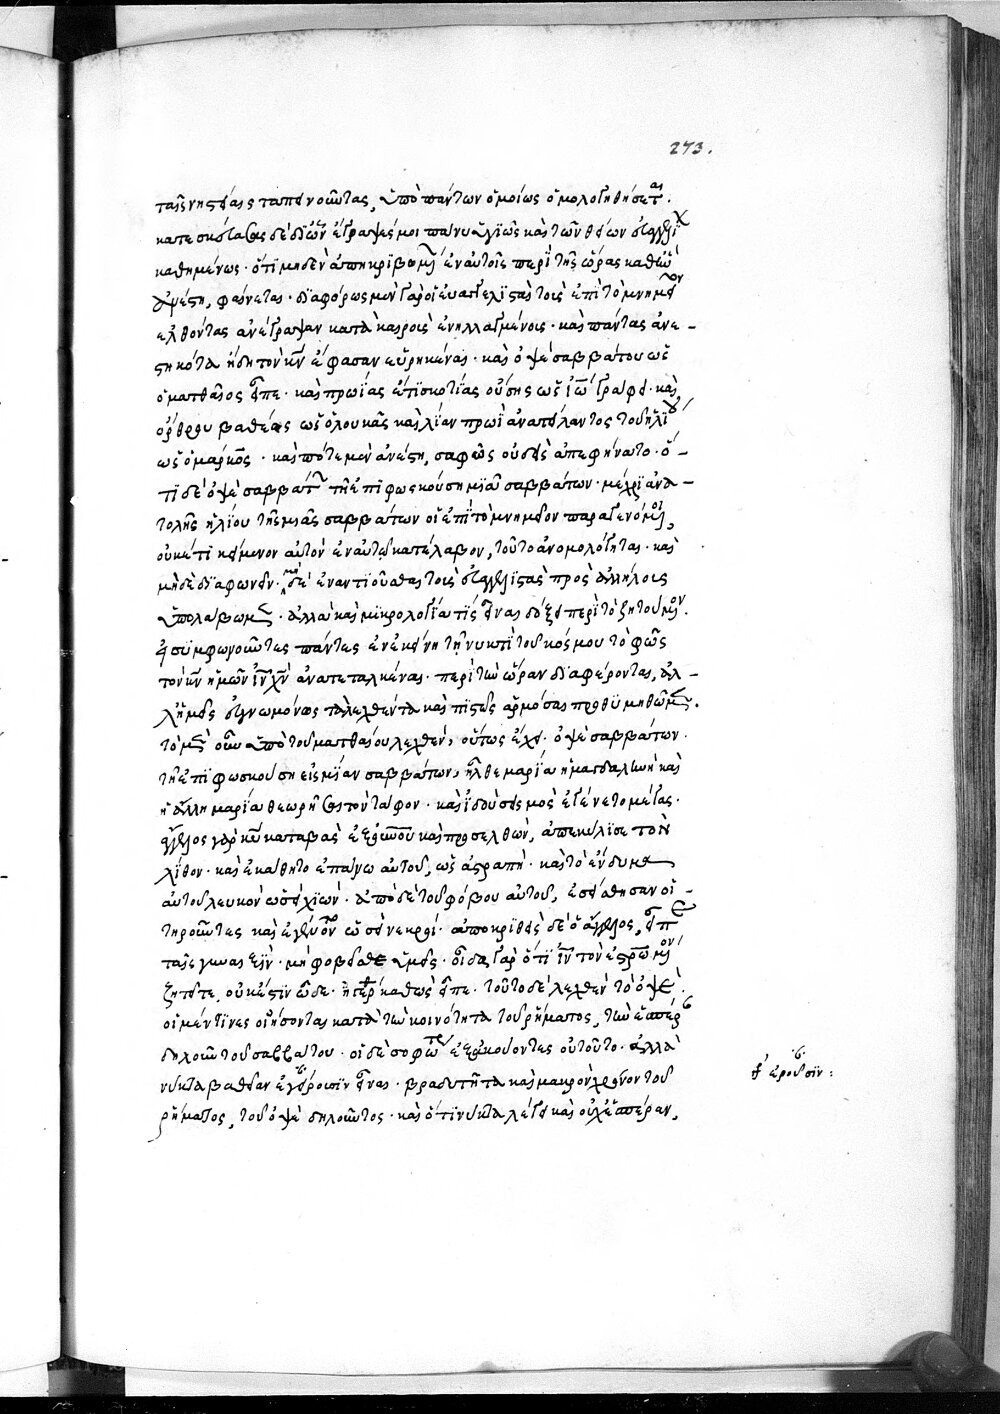 273.
ταῖς νηστείαις ταπεινοῦντας, ὑπὸ πάντων ὁμοίως ὁμολογηθήσεται.
κατεσκεύασας δὲ δι' ὧν ἔγραψές μοι πάνυ ὑγιῶς καὶ τῶν θείων εὐαγγελίων
καθημένως· ὅτι μηδὲν ἀπηκριβωμένον ἐν αὐτοῖς περὶ τῆς ὥρας καθ' ἣν
ἀνέστη, φαίνεται· διαφόρως μὲν γὰρ οἱ εὐαγγελισταὶ τοὺς ἐπὶ τὸ μνημεῖον
ἐλθόντας ἀνέγραψαν κατὰ καιροὺς ἐνηλλαγμένοις· καὶ πάντας ἀνε-
στηκότα ἤδη τὸν κν ἔφασαν εὑρηκέναι· καὶ ὀψὲ σαββάτου ὡς
ὁ ματθαῖος εἶπε· καὶ πρωΐας ἔτι σκοτίας οὔσης ὡς ἰω γράφει· καὶ
ὄρθρου βαθέος ὡς ὁ λουκᾶς καὶ λίαν πρωῒ ἀνατείλαντος τοῦ ἡλίου
ὡς ὁ μάρκος· καὶ πότε μὲν ἀνέστη, σαφῶς οὐδεὶς ἀπεφήνατο· ὅ-
τι δὲ ὀψὲ σαββάτων τῇ ἐπιφωσκούσῃ μιᾷ σαββάτων· μέχρι ἀνα-
τολῆς ἡλίου τῆς μιᾶς σαββάτων οἱ ἐπὶ τὸ μνημεῖον παραγενόμενοι,
οὐκέτι κείμενον αὐτὸν ἐν αὐτῷ κατέλαβον, τοῦτο ἀνομολόγηται· καὶ
μηδὲ διαφωνεῖν· μηδὲ ἐναντιοῦσθαι τοὺς εὐαγγελιστὰς πρὸς ἀλλήλοις
ὑπολάβωμεν· ἀλλὰ καὶ μικρολογία τις εἶναι δόξει περὶ τὸ ζητούμενον.
εἰ συμφωνοῦντες πάντες ἐν ἐκείνῃ τῇ νυκτὶ τοῦ κόσμου τὸ φῶς
τὸν κν ἡμῶν ιν χν ἀνατεταλκέναι· περὶ τὴν ὥραν διαφέρονται, ἀλ-
λ' ἡμεῖς εὐγνωμόνως τὰ λεχθέντα καὶ πιστῶς ἁρμόσαι προθυμηθῶμεν.
τὸ μὲν οὖν ὑπὸ τοῦ ματθαίου λεχθὲν, οὕτως ἔχει· ὀψὲ σαββάτων·
τῇ ἐπιφωσκούσῃ εἰς μίαν σαββάτων, ἦλθε μαρία ἡ μαγδαληνὴ καὶ
ἡ ἄλλη μαρία θεωρῆσαι τὸν τάφον· καὶ ἰδοὺ σεισμὸς ἐγένετο μέγας·
ἄγγελος γὰρ κυ καταβὰς ἐξ ουνου καὶ προσελθὼν, ἀπεκύλισε τὸν
λίθον· καὶ ἐκάθητο ἐπάνω αὐτοῦ, ὡς ἀστραπὴ· καὶ τὸ ἔνδυμα
αὐτοῦ λευκὸν ὡσεὶ χιών· ἀπὸ δὲ τοῦ φόβου αὐτοῦ, ἐσείσθησαν οἱ
τηροῦντες καὶ ἐγένοντο ὡσεὶ νεκροί· ἀποκριθεὶς δὲ ὁ ἄγγελος, εἶπε
ταῖς γυναιξὶν· μὴ φοβεῖσθε ὑμεῖς· οἶδα γὰρ ὅτι ιν τὸν εσρωμενον
ζητεῖτε, οὐκ ἔστιν ὧδε· ἠγέρθη καθὼς εἶπε· τοῦτο δὲ λεχθὲν τὸ ὀψὲ·
οἱ μέν τινες οἰήσονται κατὰ τὴν κοινότητα τοῦ ῥήματος, τὴν ἑσπέραν
δηλοῦν τοῦ σαββάτου· οἱ δὲ σοφώτερον ἐξακούοντες οὐ τοῦτο· ἀλλὰ
νύκτα βαθεῖαν ἐγεροῦσιν εἶναι· βραδυτῆτα καὶ μακρὸν χρόνον τοῦ
ῥήματος, τοῦ ὀψὲ δηλοῦντος· καὶ ὅτι νύκτα λέγει καὶ οὐχ ἑσπέραν,
ἐροῦσιν: